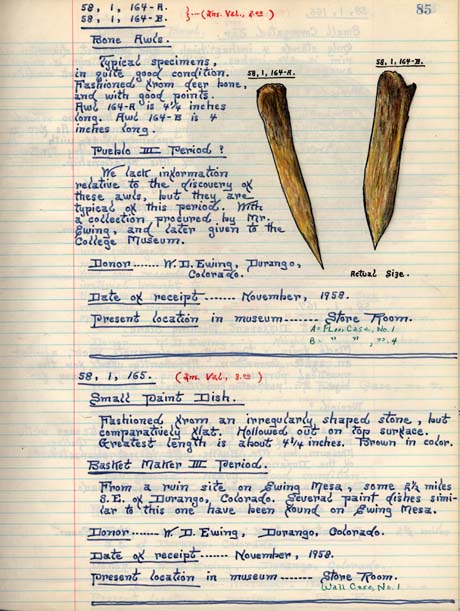 85
58, 1, 164-A.
58, 1, 164-B.
}---(Ins. Val., 2.00)
Bone Awls.
Typical specimens,
in quite good condition.
Fashioned from deer bone,
and with good points.
Awl 164-A is 4¼ inches
long. Awl 164-B is 4
inches long.
58, 1, 164-A.
58, 1, 164-B.
Pueblo III Period ?
We lack information
relative to the discovery of
these awls, but they are
typical of this period. With
a collection procured by Mr.
Ewing, and later given to the
College Museum.
Donor ...... W. D. Ewing, Durango,
Colorado.
Actual Size.
Date of receipt ------- November, 1958.
Present location in museum ------ Store Room.
A = Flr. Case, No. 1
B = " " , ". 4
58, 1, 165. (Ins. Val., 2.00)
Small Paint Dish.
Fashioned from an irregularly shaped stone, but
comparatively flat. Hollowed out on top surface.
Greatest length is about 4¼ inches. Brown in color.
Basket Maker III Period.
From a ruin site on Ewing Mesa, some 2½ miles
S.E. of Durango, Colorado. Several paint dishes simi-
lar to this one have been found on Ewing Mesa.
Donor ------ W. D. Ewing, Durango, Colorado.
Date of receipt ------ November, 1958.
Present location in museum ------- Store Room.
Wall Case, No. 1